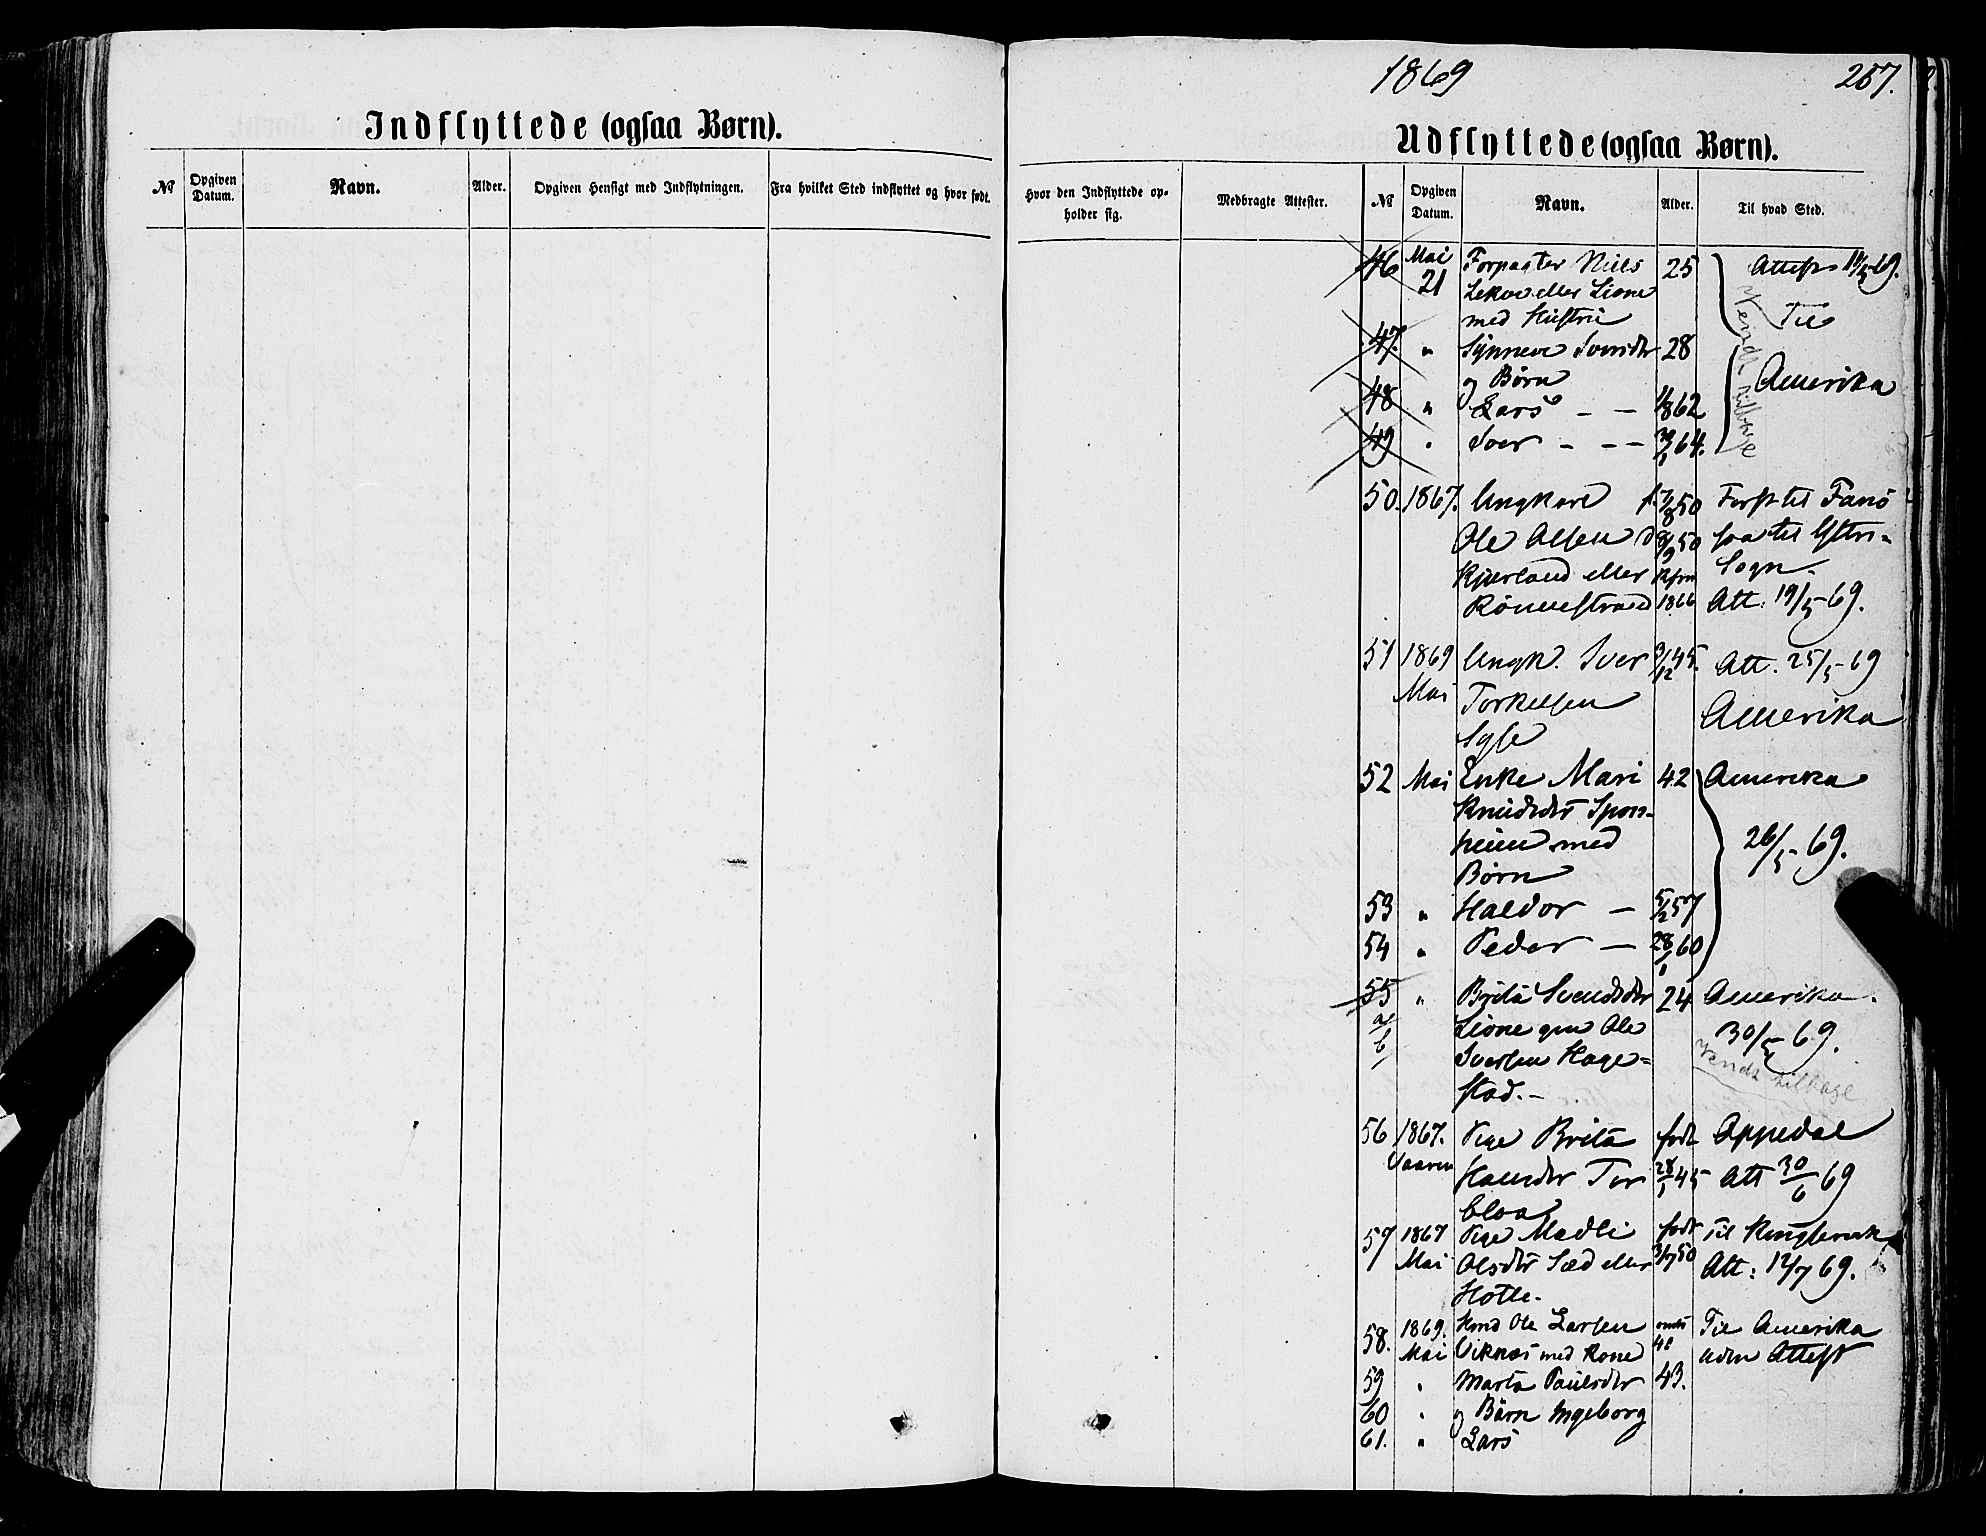 1869
257.
Indflyttede (ogsaa Børn).
Udflyttede (ogsaa Børn).
№
Opgiven Datum.
Navn.
Alder.
Opgiven Hensigt med Indflytningen.
Fra hvilket Sted indflyttet og hvor født.
Hvor den Indflyttede opholder sig.
Medbragte Attester.
№
Opgiven Datum.
Navn.
Alder.
Til hvad Sted.
46 Mai 21 Forpagter Niels 25 Attest 19/5 69.
Lekve eller Lione
med Hustru Til
47. " Synneve Iversdtr 28
og Børn Amerika
48 " Lars – – 1/8 62
49 " Iver – – – 64.
Vendt tilbage
50. 1867. Ungkarl f. 7/8 50 Først til Fanø
Ole Olsen d 8/9 50 saa til Ystre-
Kjærland eller Kfrm Sogn.
Rønnestrand 1866 Att: 19/5 69.
51 1869 Ungk. Iver 3/12 45. Att. 25/5 69
Mai Torkelsen Amerika
Syse
52 Mai Enke Mari 42 Amerika
Knudsdtr Spon-
heim med 26/5 69.
Børn
53 " Haldor – 5/2 57
54 " Peder – 28/1 60
55 " Brita Svendsdtr 24 Amerika.
a/ Lione gm Ole 30/5 69.
b/ Iversen Hage-
stad. – Vendt tilbage
56 1867. Pige Brita født Oppedal
Vaaren Hansdtr Tor 28/1 45 Att 30/6 69
bloa
57 1867 Pige Madli født til Kinservik
Mai Olsdtr Sæd eller 3/7 50 Att: 12/7 69.
Hotle.
58. 1869. Hmd Ole Larsen omtr Til Amerika
Mai Viknæs med Kone 48 uden Attest
59 " Marta Paulsdtr 43.
60 " og Børn Ingeborg
61. " Lars